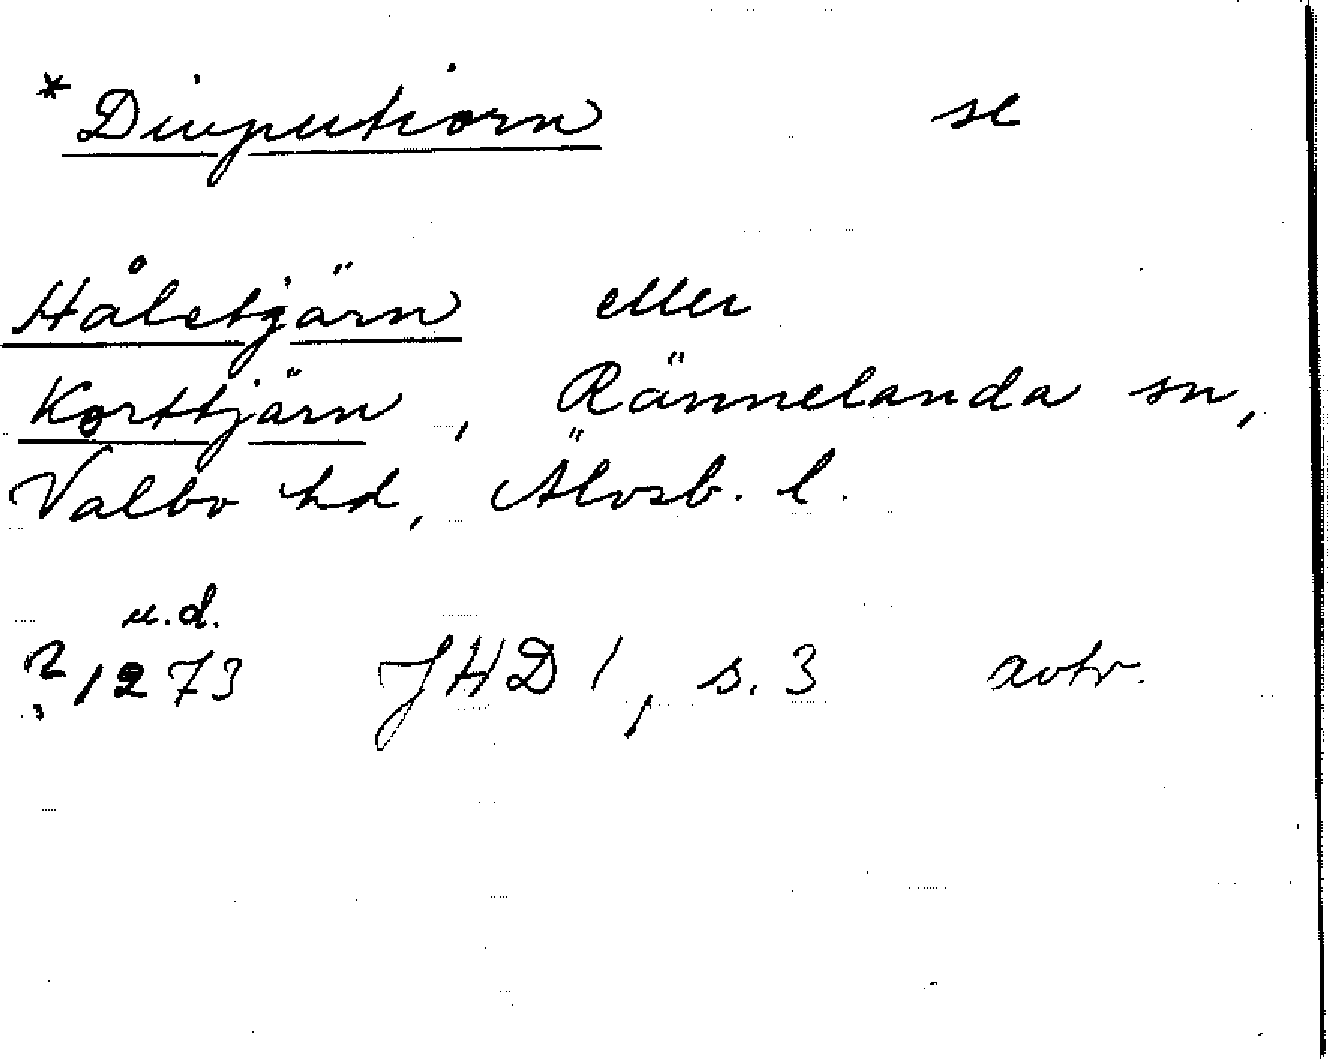 * Diuputiorn se
Håletjärn eller
Korttjärn, Rännelanda sn,
Valbo hd, Älvsb. l.
u.d.
1273 JHD 1, s. 3 avtr.